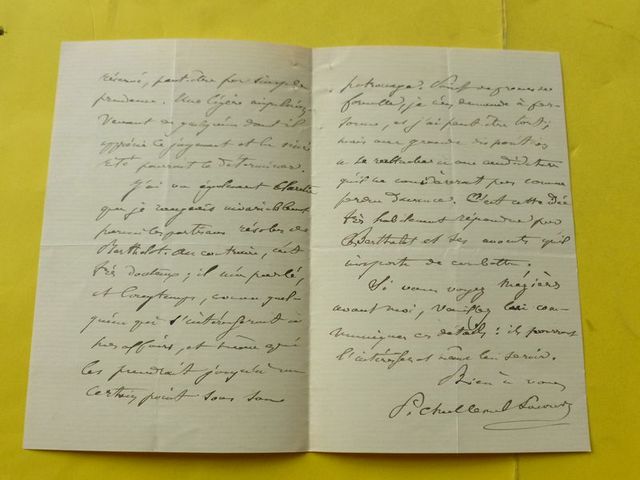 réservé, peut-être par simple
prudence. Une légère
venant de quelqu'un dont il
apprécie le jugement et la sincé-
rité pourrait le déterminer.
J'ai vu également Claretie
que je rangeais invariablement
parmi les partisans résolus de
Berthelot. Au contraire, c'est
très douteux ; il m'a parlé,
et longtemps, comme quel-
qu'un qui s'intéresserait à
mes affaires, et même qui
les prendrait jusqu'à un
certain point sous son
patronage. Sauf
formelle, je n'en demande à per-
sonne, et j'ai peut-être tort ;
mais une grande
a se rattacher à une candidature
qu'il ne considèrerait pas comme
perdue d'avance. C'est cette idée
très habilement répandue par
Berthelot et ses
importe de combattre.
Si vous voyez Mézières
avant moi, veuillez lui com-
muniquer ces détails : ils pourront
l'intéresser et même lui servir.
Bien à vous
P. Challemel Lacour